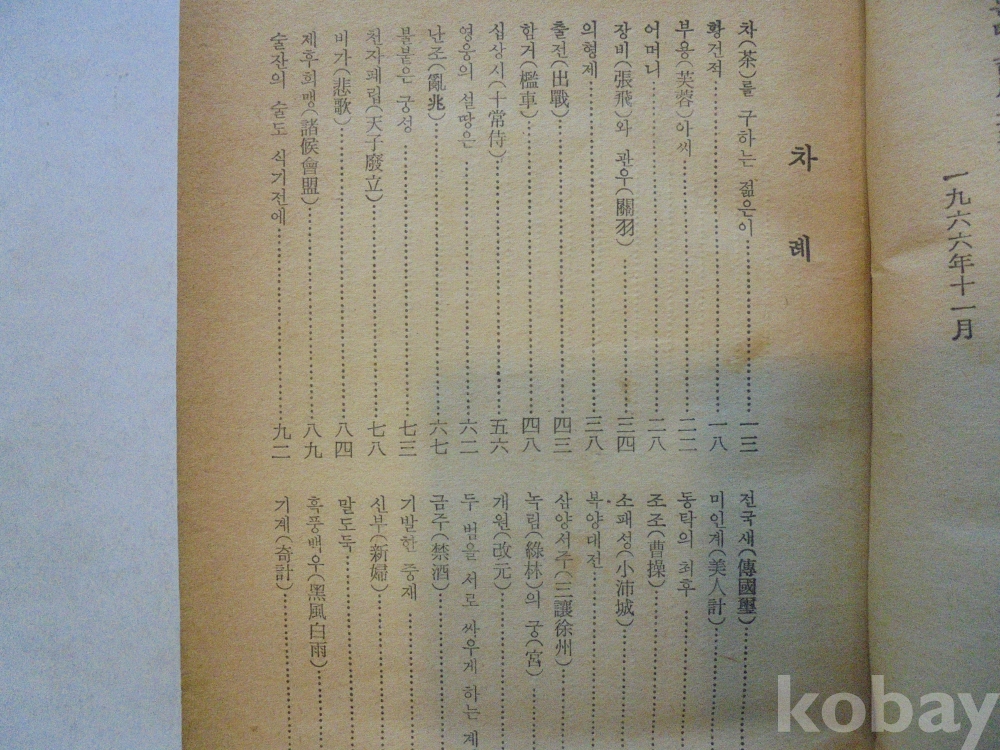 一九六六年十一月
차 례
차(茶)를 구하는 젊은이 一三
황건적 一八
부용(芙蓉)아씨 二二
어머니 二八
장비(張飛)와 관우(關羽) 三四
의형제 三八
출전(出戰) 四三
함거(檻車) 四八
십상시(十常侍) 五六
영웅의 설땅은 六二
난조(亂兆) 六七
불붙은 궁성 七三
천자폐립(天子廢立) 七八
비가(悲歌) 八四
제후회맹(諸候會盟) 八九
술잔의 술도 식기전에 九二
전국새(傳國璽)
미인계(美人計)
동탁의 최후
조조(曹操)
소패성(小沛城)
복양대전
삼양서주(三讓徐州)
녹림(綠林)의 궁(宮)
개원(改元)
두 범을 서로 싸우게 하는 계
금주(禁酒)
기발한 중재
신부(新婦)
말도둑
흑풍백우(黑風白雨)
기계(奇計)
kobay